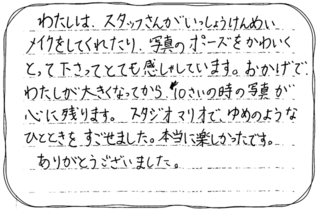 わたしは、スタッフさんがいっしょうけんめい
メイクをしてくれたり、写真のポーズをかわいく
とって下さってとても感しゃしています。おかげで、
わたしが大きくなってから、10さいの時の写真が
心に残ります。スタジオマリオで、ゆめのような
ひとときをすごせました。本当に楽しかったです。
ありがとうございました。